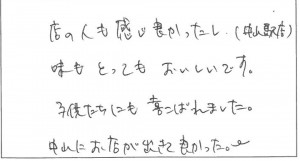 店の人も感じ良かったし、(中山駅店)
味もとってもおいしいです。
子供たちにも喜こばれました。
中山にお店が出きて良かった。